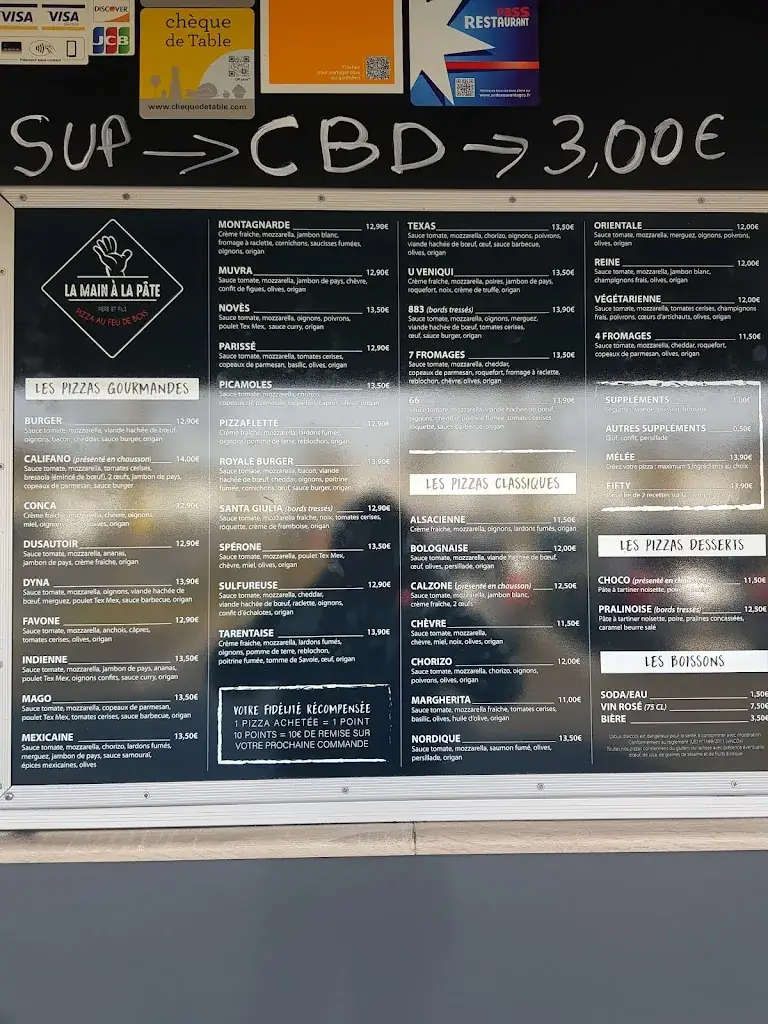 VISA
VISA
DISCOVER
JCB
Paiement sans contact
chèque
de Table
www.chequedetable.com
PASS
RESTAURANT
SUP → CBD → 3,00€
LA MAIN À LA PÂTE
PÈRE ET FILS
PIZZA AU FEU DE BOIS
LES PIZZAS GOURMANDES
BURGER 12,90€
Sauce tomate, mozzarella, viande hachée de bœuf,
oignons, bacon, cheddar, sauce burger, origan
CALIFANO (présenté en chausson) 14,00€
Sauce tomate, mozzarella, tomates cerises,
bresaola (émincé de bœuf), 2 œufs, jambon de pays,
copeaux de parmesan, sauce burger
CONCA 12,90€
Crème fraîche, mozzarella, chèvre, oignons,
miel, olives, origan
DUSAUTOIR 12,90€
Sauce tomate, mozzarella, ananas,
jambon de pays, crème fraîche, origan
DYNA 13,90€
Sauce tomate, mozzarella, oignons, viande hachée de
bœuf, merguez, poulet Tex Mex, sauce barbecue, origan
FAVONE 12,90€
Sauce tomate, mozzarella, anchois, câpres,
tomates cerises, olives, origan
INDIENNE 13,50€
Sauce tomate, mozzarella, jambon de pays, ananas,
poulet Tex Mex, oignons confits, sauce curry, origan
MAGO 13,50€
Sauce tomate, mozzarella, copeaux de parmesan,
poulet Tex Mex, tomates cerises, sauce barbecue, origan
MEXICAINE 13,50€
Sauce tomate, mozzarella, chorizo, lardons fumés,
merguez, jambon de pays, sauce samouraï,
épices mexicaines, olives
MONTAGNARDE 12,90€
Crème fraîche, mozzarella, jambon blanc,
fromage à raclette, cornichons, saucisses fumées,
oignons, origan
MUVRA 12,90€
Sauce tomate, mozzarella, jambon de pays, chèvre,
confit de figues, olives, origan
NOVÈS 13,50€
Sauce tomate, mozzarella, oignons, poivrons,
poulet Tex Mex, sauce curry, origan
PARISSÉ 12,90€
Sauce tomate, mozzarella, tomates cerises,
copeaux de parmesan, basilic, olives, origan
PICAMOLES 13,50€
Sauce tomate, mozzarella, chorizo,
copeaux de parmesan, origan
PIZZAFLETTE 12,90€
Crème fraîche, mozzarella, lardons fumés,
oignons, pomme de terre, reblochon, origan
ROYALE BURGER 13,90€
Sauce tomate, mozzarella, bacon, viande
hachée de bœuf, cheddar, oignons, poitrine
fumée, cornichons, œuf, sauce burger, origan
SANTA GIULIA (bords tressés) 12,90€
Sauce tomate, mozzarella fraîche, noix, tomates cerises,
roquette, crème de framboise, origan
SPÉRONE 13,50€
Sauce tomate, mozzarella, poulet Tex Mex,
chèvre, miel, olives, origan
SULFUREUSE 12,90€
Sauce tomate, mozzarella, cheddar,
viande hachée de bœuf, raclette, oignons,
confit d'échalotes, origan
TARENTAISE 13,90€
Crème fraîche, mozzarella, lardons fumés,
oignons, pomme de terre, reblochon,
poitrine fumée, tomme de Savoie, œuf, origan
VOTRE FIDÉLITÉ RÉCOMPENSÉE
1 PIZZA ACHETÉE = 1 POINT
10 POINTS = 10€ DE REMISE SUR
VOTRE PROCHAINE COMMANDE
TEXAS 13,50€
Sauce tomate, mozzarella, chorizo, oignons, poivrons,
viande hachée de bœuf, œuf, sauce barbecue,
olives, origan
U VENIQUI 13,50€
Crème fraîche, mozzarella, poires, jambon de pays,
roquefort, noix, crème de truffe, origan
883 (bords tressés) 13,90€
Sauce tomate, mozzarella, oignons, merguez,
viande hachée de bœuf, tomates cerises,
œuf, sauce burger, origan
7 FROMAGES 13,50€
Sauce tomate, mozzarella, cheddar,
copeaux de parmesan, roquefort, fromage à raclette,
reblochon, chèvre, olives, origan
66 13,90€
Sauce tomate, mozzarella, viande hachée de bœuf,
oignons, cheddar, poitrine fumée, tomates cerises,
roquette, sauce barbecue, origan
LES PIZZAS CLASSIQUES
ALSACIENNE 11,50€
Crème fraîche, mozzarella, oignons, lardons fumés, origan
BOLOGNAISE 12,00€
Sauce tomate, mozzarella, viande hachée de bœuf,
œuf, olives, persillade, origan
CALZONE (présenté en chausson) 12,50€
Sauce tomate, mozzarella, jambon blanc,
crème fraîche, 2 œufs
CHÈVRE 11,50€
Sauce tomate, mozzarella,
chèvre, miel, noix, olives, origan
CHORIZO 12,00€
Sauce tomate, mozzarella, chorizo, oignons,
poivrons, olives, origan
MARGHERITA 11,00€
Sauce tomate, mozzarella fraîche, tomates cerises,
basilic, olives, huile d'olive, origan
NORDIQUE 13,50€
Sauce tomate, mozzarella, saumon fumé, olives,
persillade, origan
ORIENTALE 12,00€
Sauce tomate, mozzarella, merguez, oignons, poivrons,
olives, origan
REINE 12,00€
Sauce tomate, mozzarella, jambon blanc,
champignons frais, olives, origan
VÉGÉTARIENNE 12,00€
Sauce tomate, mozzarella, tomates cerises, champignons
frais, poivrons, cœurs d'artichauts, olives, origan
4 FROMAGES 11,50€
Sauce tomate, mozzarella, cheddar, roquefort,
copeaux de parmesan, olives, origan
SUPPLÉMENTS 1,00€
AUTRES SUPPLÉMENTS 0,50€
Œuf, confit, persillade
MÉLÉE 13,90€
Créez votre pizza : maximum 5 ingrédients au choix
FIFTY 13,90€
LES PIZZAS DESSERTS
CHOCO (présenté en chausson) 11,50€
Pâte à tartiner noisette, poire
PRALINOISE (bords tressés) 12,50€
Pâte à tartiner noisette, poire, pralines concassées,
caramel beurre salé
LES BOISSONS
SODA/EAU 1,50€
VIN ROSÉ (75 CL) 7,50€
BIÈRE 3,50€
L'abus d'alcool est dangereux pour la santé, à consommer avec modération